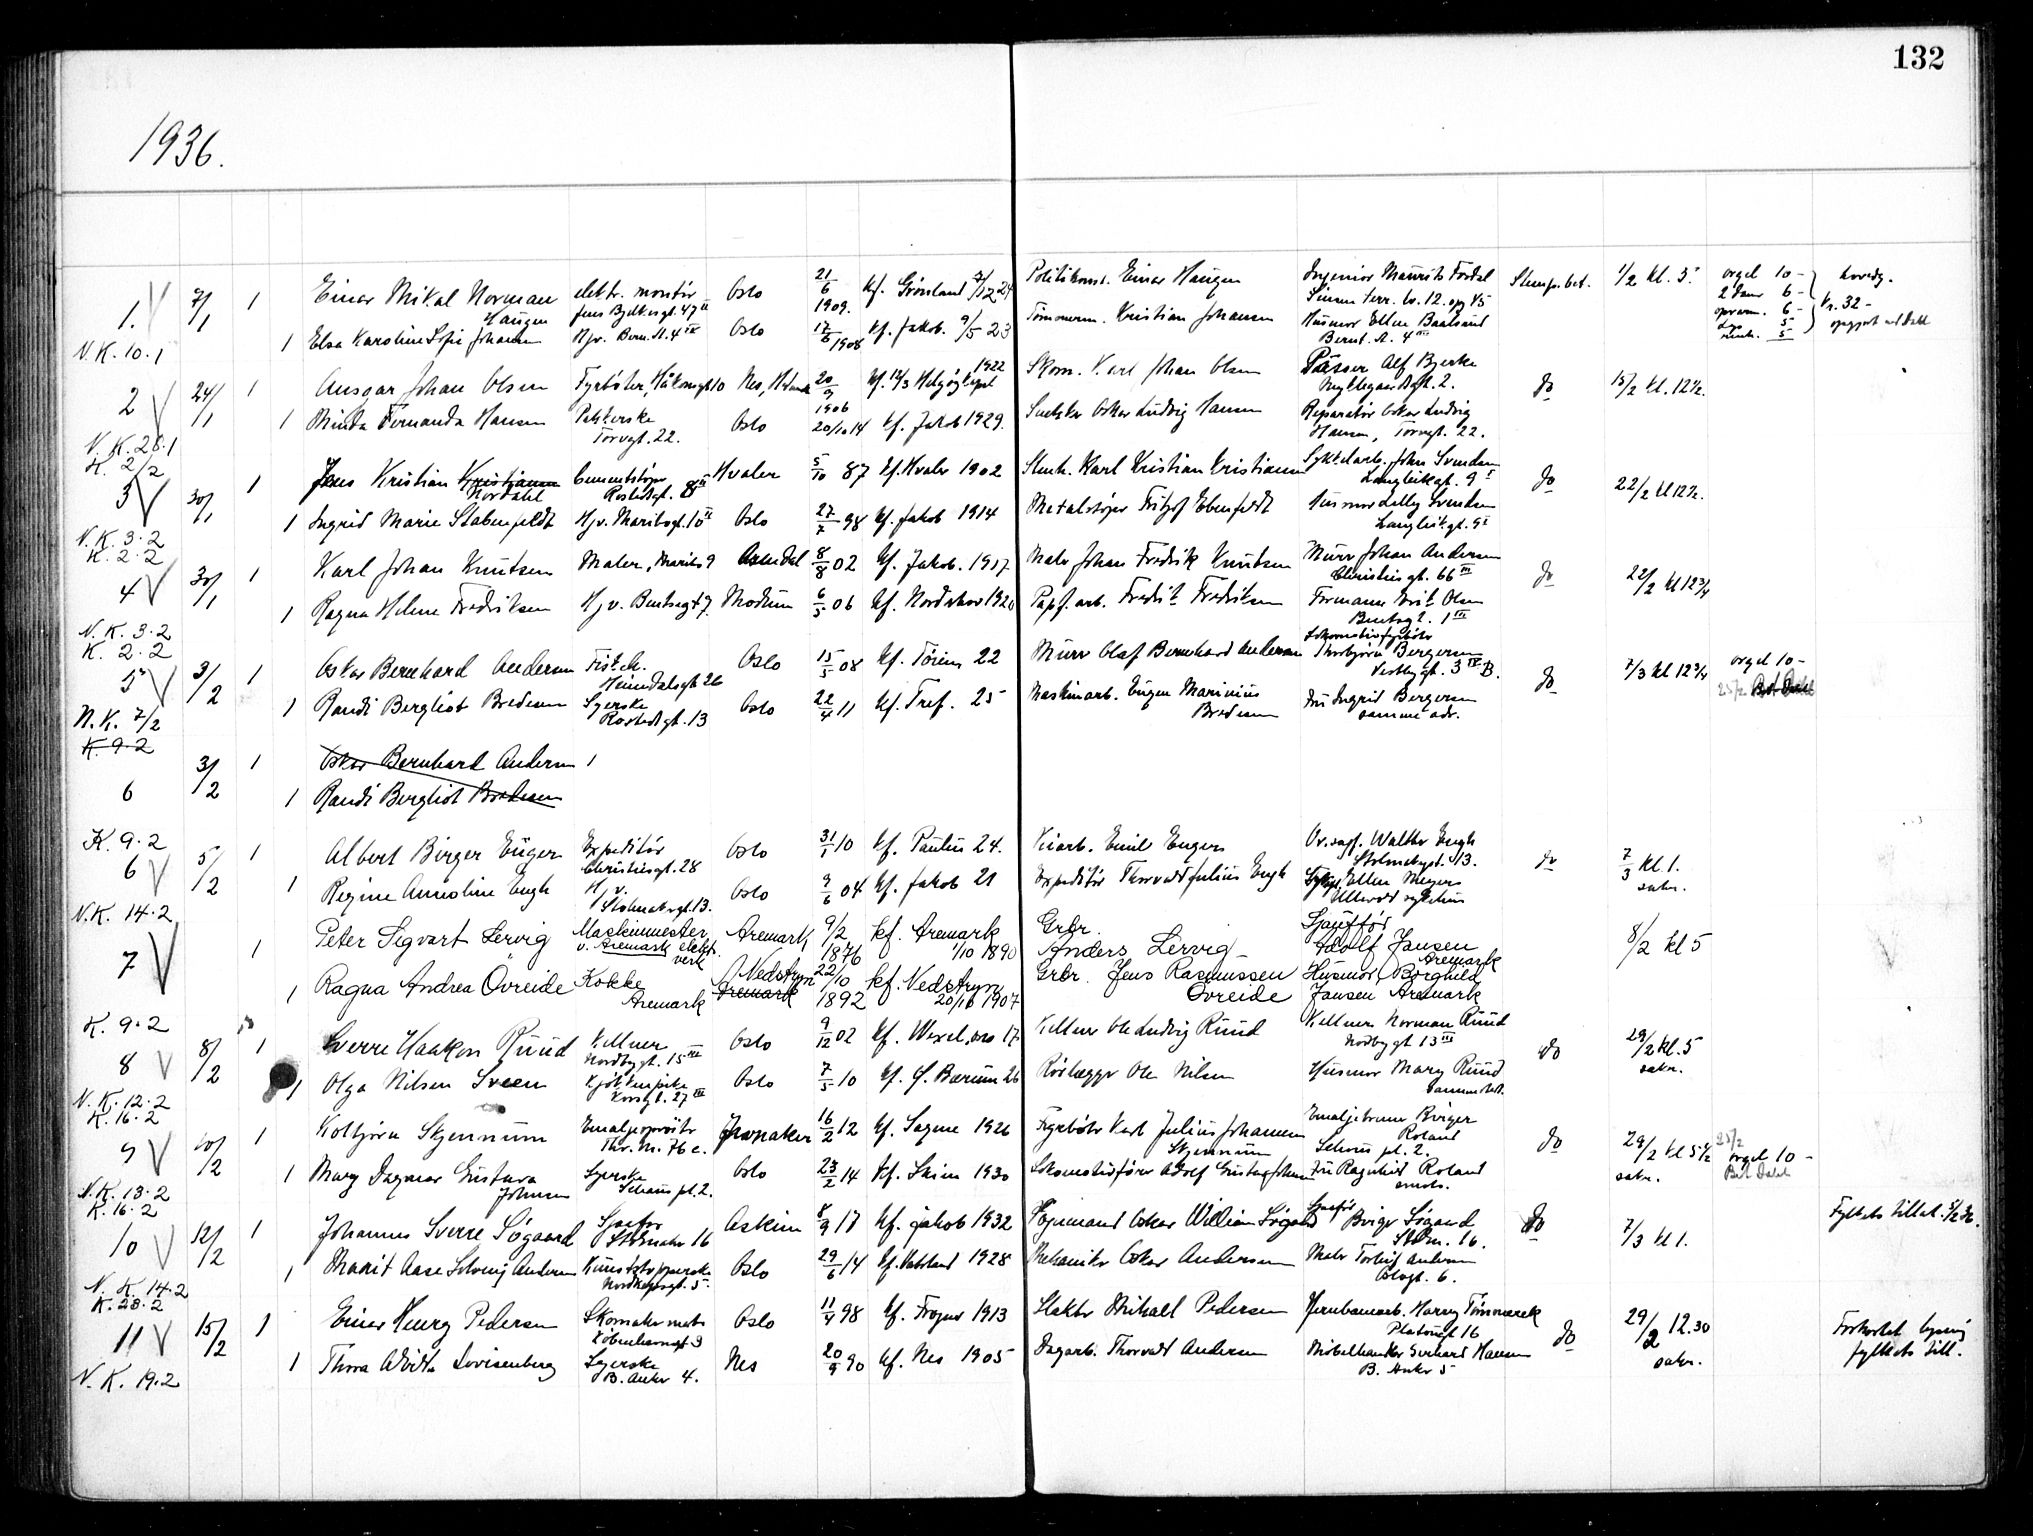 132
1936.
1. 7/1 1 Einar Mikal Norman Haugen elektr. montør Jens Bjelkesgt. 47 II Oslo 21/6 1909. kf. Grønland 7/12 24 Politikonst. Einar Haugen Ingeniør Maurits Fordal Sinsen terr. Stemp. bet. 1/2 kl. 5 orgel 10- hovedg.
N.K. 10.1 1 Elsa Karoline Sofie Johansen Hjv. Bern. A. 4 III Oslo 17/6 1908 kf. Jakob. 9/5 23 Tømmerm. Kristian Johansen Husmor Ellen Baalsrud Bernt. A. 4 III 6- kr. 32-
2 24/1 1 Ansgar Johan Olsen Fyrbøter, Håkonsgt 10 Nes, Hedmark 20/9 1906 kf. 12/3 1922 Helgøy Kapel Skom. Karl Johan Olsen Pusser Alf Bjerke Nyklegaardsgt. 2. do 15/2 kl. 12 1/2.
N.K. 28.1 1 Minda Fernanda Hansen Pakkerske Torvgt. 22. Oslo 20/10 14 kf. Jakob 1929. Snekker Oskar Ludvig Hansen Reparatør Oskar Ludvig Hansen, Torvgt. 22.
K. 2/2
3 30/1 1 Jens Kristian Kristiansen Nordahl Cementstøper Rostedsgt. 8 II Hvaler 5/10 87 kf. Hvaler 1902 Stenh. Karl Kristian Kristiansen Sykkelarb. John Svendsen Langleiksgt. 9 I do 22/2 kl 12 1/2.
N.K. 3.2 1 Ingrid Marie Stabenfeldt Hjv. Maribogt. 10 II Oslo 27/7 98 kf. Jakob 1914 Metalstøper Fritjof Ebenfeldt Husmor Lilly Svendsen Langleiksgt. 9 I
K. 2.2
4 30/1 1 Karl Johan Knutsen Maler, Maribo 9 Arendal 8/8 02 kf. Jakob. 1917 Maler Johan Fredrik Knutsen Murer Johan Andersen Christiesgt. 66 III do 22/2 kl 12 3/4
N.K. 3.2 1 Ragna Helene Fredriksen Hjv. Bentsegt 7. Modum 6/5 06 kf. Nordstrand 1920 Papf. arb. Fredrik Fredriksen Formann Erik Olsen Bentsegt. 1 III
K. 2.2
5 3/2 1 Oskar Bernhard Andersen Fiskeh. Heimdalsgt 26 Oslo 15/5 08 kf. Tøien 22 Murer Olaf Bernhard Andersen Lokomotivfyrbøter Thorbjørn Bergersen Vestbygt. 3 IV B. do 7/3 kl 12 3/4 orgel 10-
N.K. 7/2 1 Randi Bergliot Bredesen Syerske Rostedsgt. 13 Oslo 22/4 11 kf. Tref. 25 Maskinarb. Eugen Marinius Bredesen Fru Ingrid Bergersen samme adr. 25/2 Bet. Dahl
K. 9.2
6 3/2 1 Oskar Bernhard Andersen 1
1 Randi Bergliot Bredesen
K. 9.2
6 5/2 1 Albert Birger Enger Expeditør Christiesgt. 28 Oslo 31/1 10 kf. Paulus 24. Emil Enger Walther Engh Stolmakergt. 13. do 7/3 kl 1. sakr.
N.K. 14.2 1 Regine Annoline Engh Hjv. Stolmakergt. 13. Oslo 9/6 04 kf. Jakob 21 Expeditør Thorvald Julius Engh Sykepl. Ellen Meyers Ullevål sykehus
7 1 Peter Sigvart Lervig Maskinmester v. Aremark elektr. verk Aremark 9/2 1876 kf. Aremark 1/10 1890 Grbr. Anders Lervig Sjauffør Adolf Jansen Aremark 8/2 kl 5
1 Ragna Andrea Øvreide Kokke Aremark Nedstryn Aremark 22/10 1892 kf. Nedstryn 20/10 1907 Grbr. Jens Rasmussen Øvreide Husmor, Borghild Jansen Aremark
K. 9.2
8 8/2 1 Sverre Haakon Ruud Kellner Nordbygt. 15 III Oslo 9/12 02 kf. Wexelsens 17 Kellner Ole Ludvig Ruud Kellner Norman Ruud Nordbygt 13 III do 29/2 kl. 5 sakr.
N.K. 12.2 1 Olga Nilsen Sveen Kjøkkenpike Korsgt. 27 III Oslo 7/5 10 kf. Ø. Bærum 26 Rørlegger Ole Nilsen Husmor Mary Ruud samme sted.
K. 16.2
9 10/2 1 Kolbjørn Skjennum Emaljeoprøiter Thv. M. 76 c. 16/2 12 kf. Sagene 1926 Fyrbøter Karl Julius Johansen Skjennum Emaljebrenner Birger Roland Schous pl. 2. do 29/2 kl 5 1/2 sakr. 25/2 orgel 10-
N.K. 13.2 1 Mary Dagmar Gustava Johnsen Syerske Schous pl. 2. Oslo 23/2 14 kf. Skien 1930 Lokomotivfører Adolf Gustav Johnsen Fru Ragnhild Roland smsts. Bet. Dahl
K. 16.2
10 12/2 1 Johannes Sverre Søgaard Sjaufør Stolmaker 16 Askim 8/9 17 kf. Jakob 1932 Oskar William Søgaard Sjaufør Birger Søgaard Stolm. 16. do 7/3 kl 1. Fylkets tillat. 5/2 36.
N.K. 14.2 1 Marit Aase Solveig Andersen Kunststopperske Nordkapsgt. 5 Oslo 29/6 14 kf. Vaterland 1928 Mekaniker Oskar Andersen Maler Torleif Andersen Oslogt. 6.
K. 28.2
11 15/2 1 Einar Henry Pedersen Skomakermester Københavngt 9 Oslo 11/4 98 kf. Frogner 1913 Slakter Mikael Pedersen Jernbanearb. Harry Tømmerek Platousgt 16 do 29/2 12.30 sakr. Forkortet lysning fylkets till.
N.K. 19.2 1 Thora Alvida Lovisenberg Syerske B. Anker 4. Nes 20/9 90 kf. Nes 1905 Dagarb. Thorvald Andersen Møbelhandler Gerhard Hansen B. Anker 5